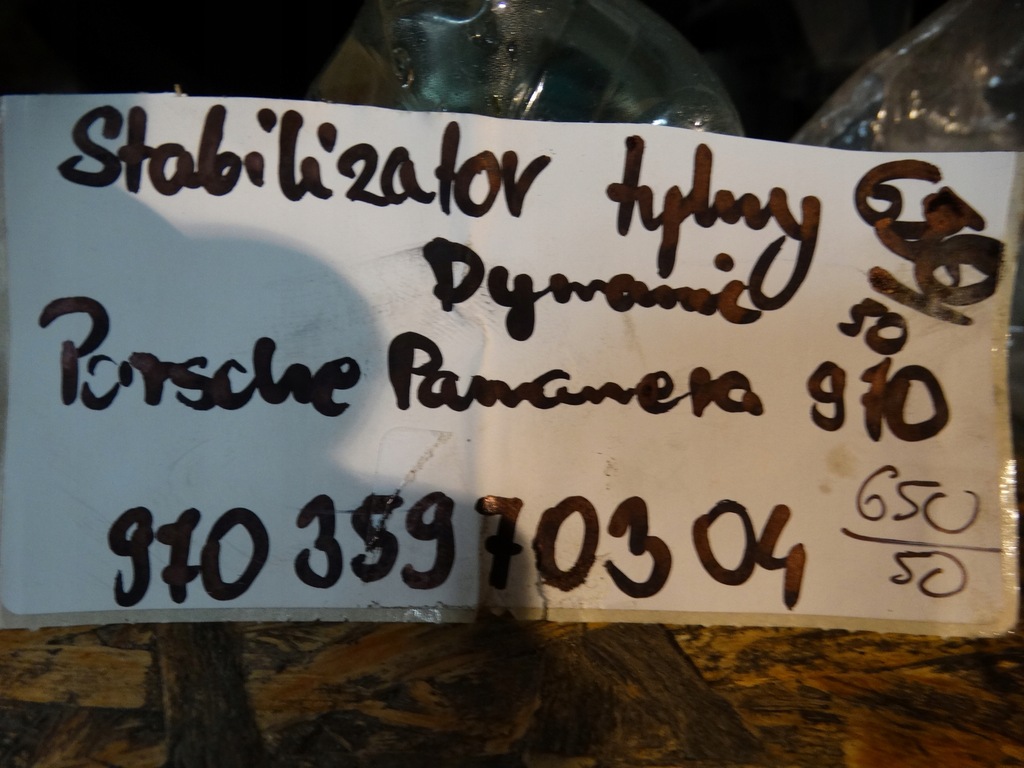 Stabilizator tylny
Dynamic
50
Porsche Panamera 970
970 359 703 04
650
50